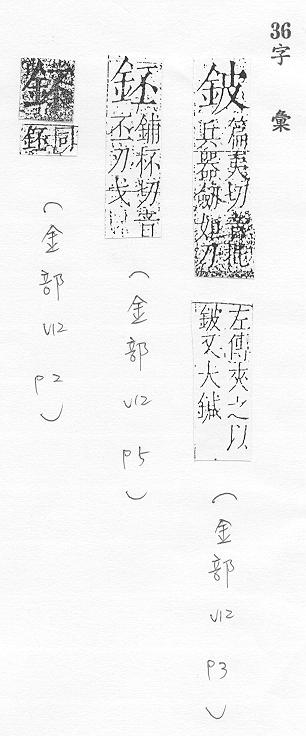 36
字彙
鈹
篇夷切音批
兵器劒如刀
左傳夾之以
鈹又大鍼
(金部 V12 P3)
鉟
鋪杯切音
丕刃戈
(金部 V12 P5)
鉟同
(金部 V12 P2)